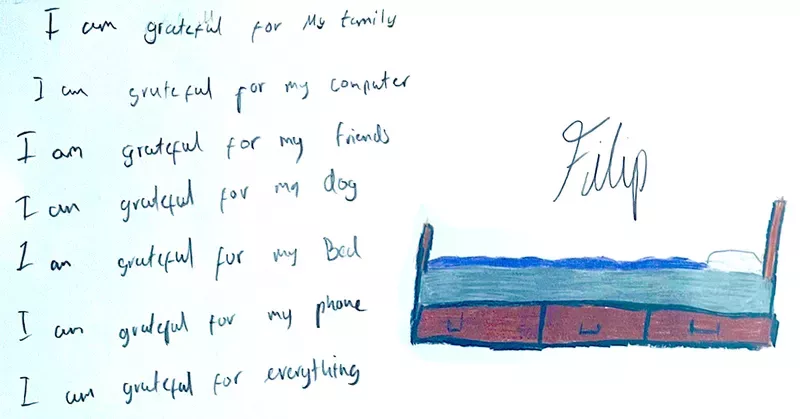 I am grateful for My family
I am grateful for my computer
I am grateful for my friends
I am grateful for my dog
I am grateful for my Bed
I am grateful for my phone
I am grateful for everything
Filip